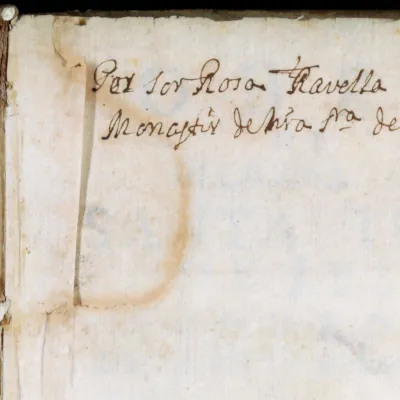 Per sor Rosa Travella
Monastir de nra sra de